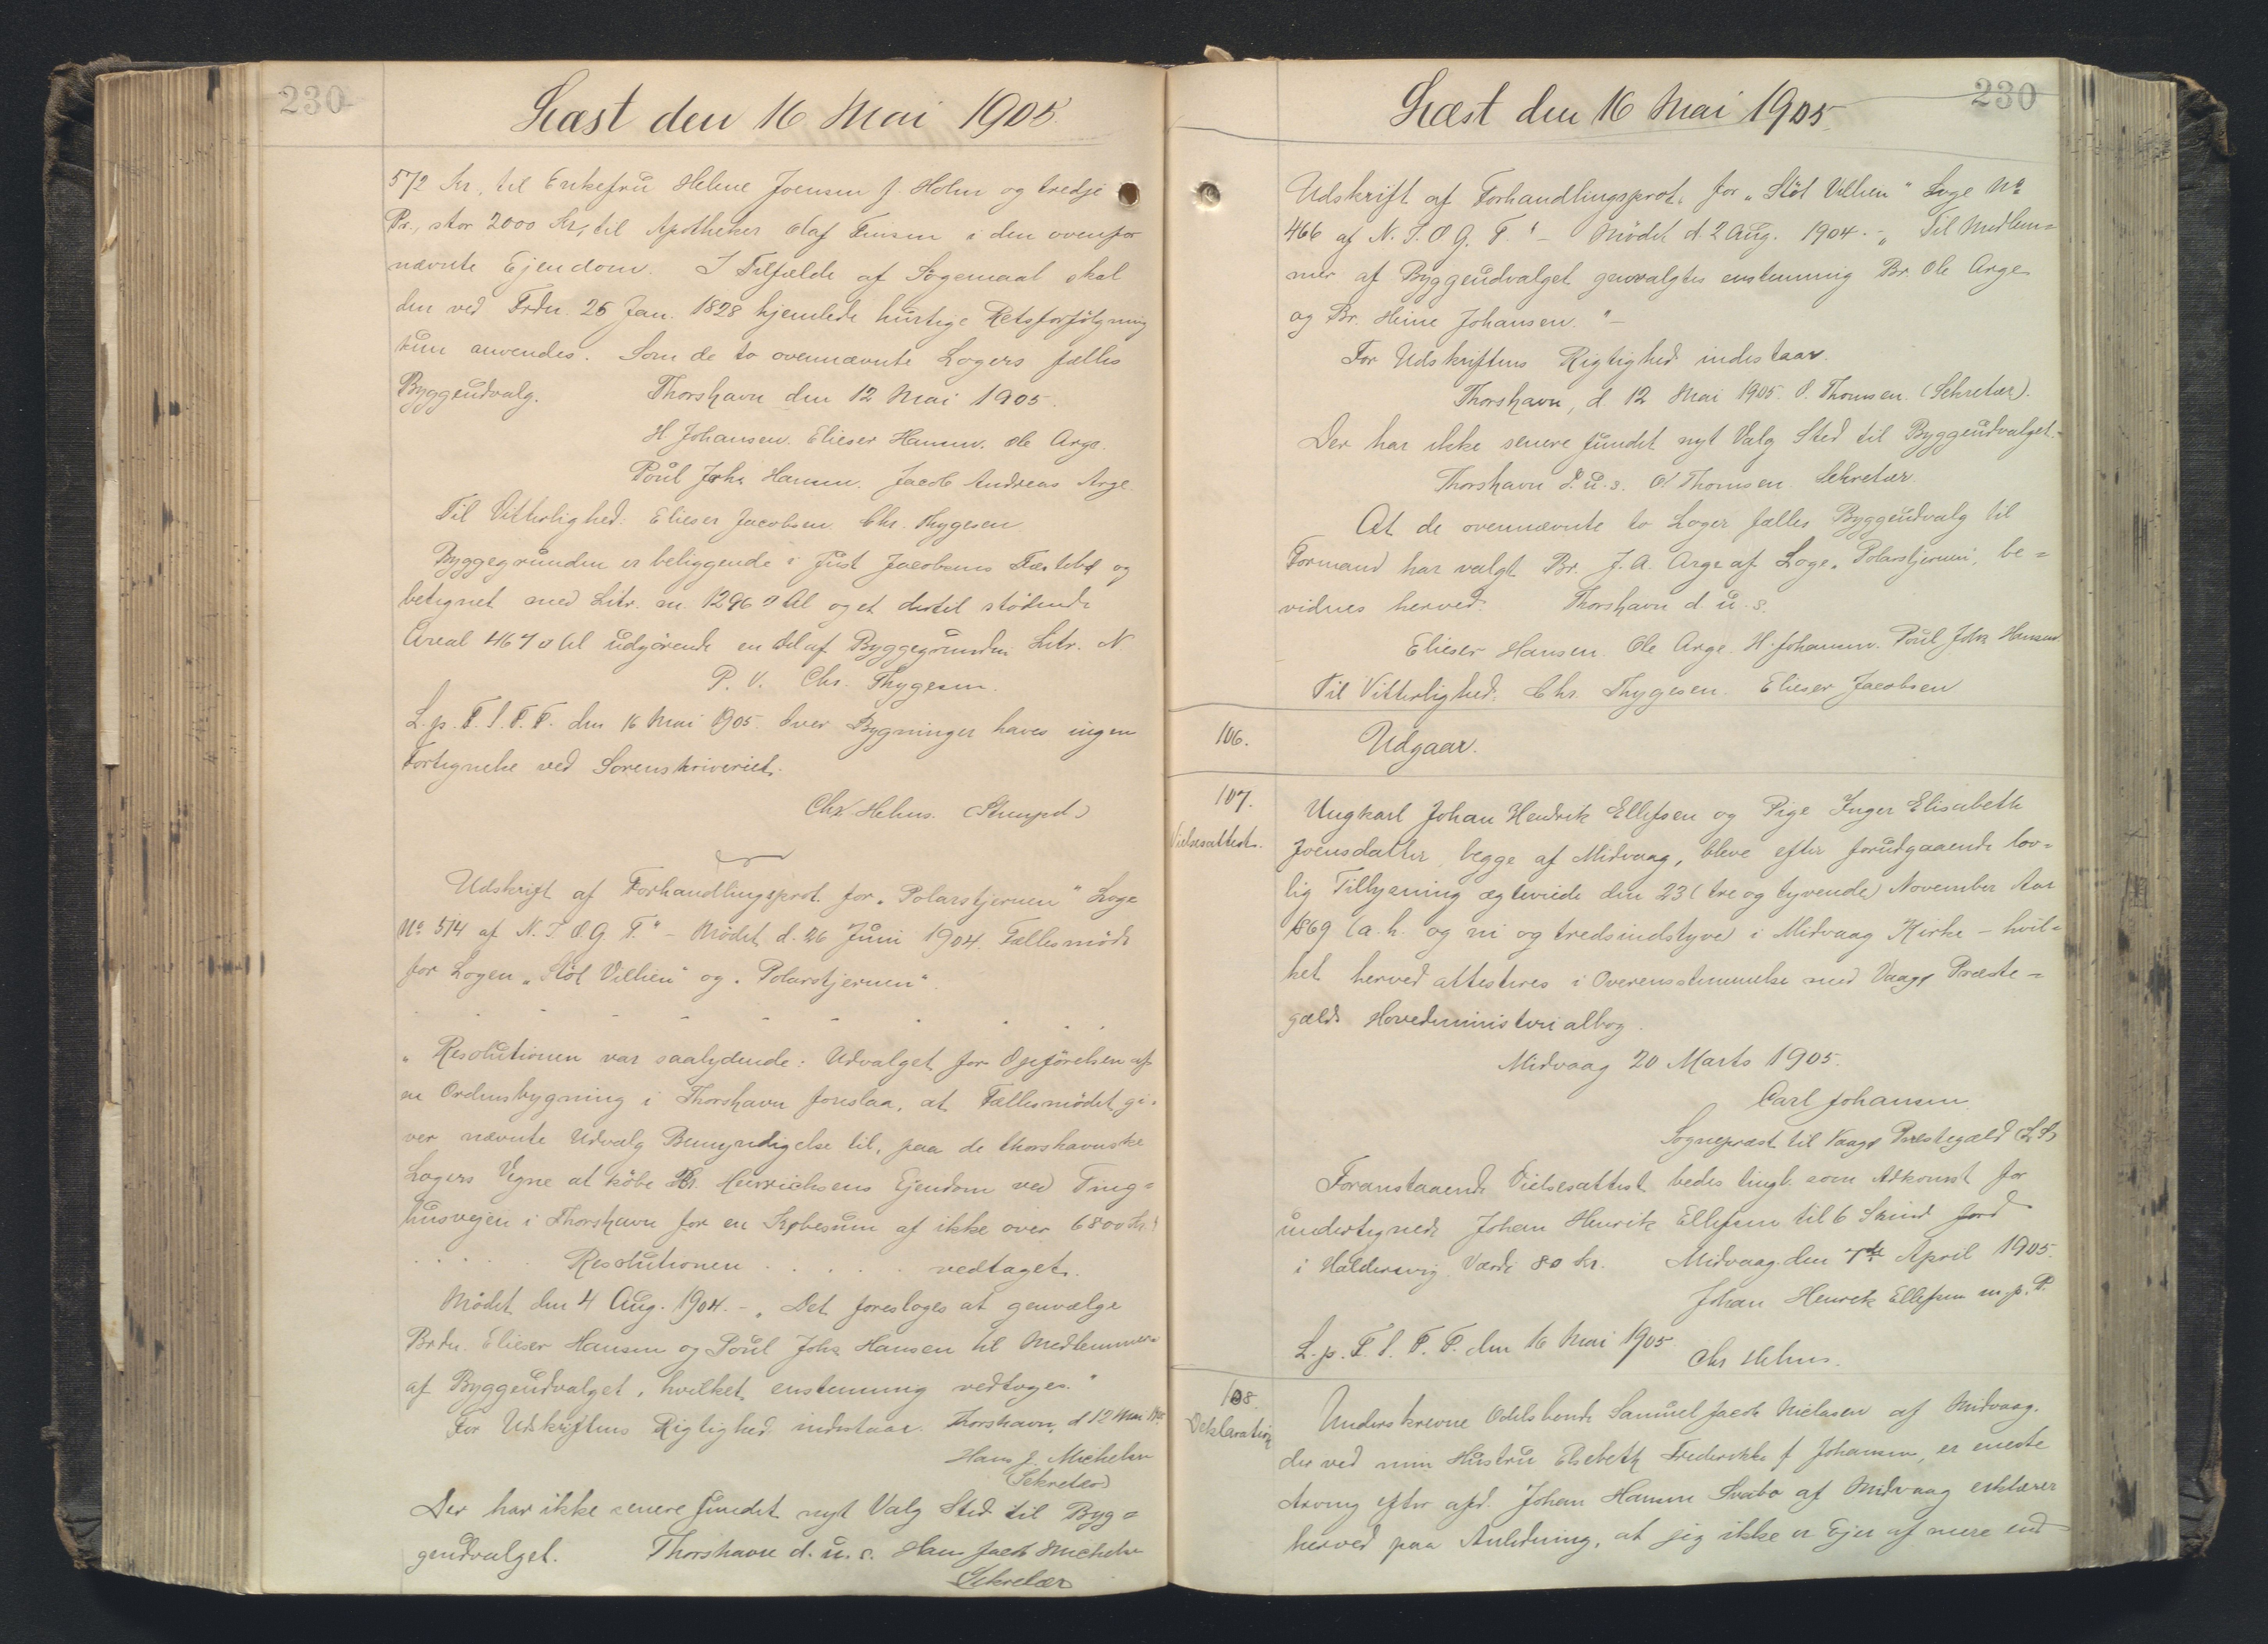 230
Læst den 16 Mai 1905.
572 Kr., til Enkefru Helene Joensen f. Holm og tredje
Pr., stor 2000 Kr, til Apotheker Olaf Finsen i den ovenfor
nævnte Ejendom. I Tilfælde af Søgemaal skal
den ved Frdn. 25 Jan. 1828 hjemlede hurtige Retsforfølgning
kun anvendes. Som de to ovennævnte Logers fælles
Byggeudvalg. Thorshavn den 12 Mai 1905.
H. Johansen. Elieser Hansen. Ole Arge.
Poul Johs Hansen. Jacob Andreas Arge.
Til Vitterlighed: Elieser Jacobsen. Chr. Thygesen.
Byggegrunden er beliggende i Just Jacobsens Fæstebol og
betegnet med Litr. m. 1296 □ Al og et dertil stødende
Areal 4670 Al udgørende en Del af Byggegrunden Litr. N
P. V. Chr. Thygesen.
L. p. F. S. F. F. den 16 Mai 1905. Over Bygninger haves ingen
Fortegnelse ved Sorenskriveriet.
Chr Helms. (Stempel)
Udskrift af Forhandlingsprot. for „Polarstjernen" Loge
No 514 af N. I. O. G. T." - Mødet d. 26 Juni 1904. Fællesmøde
for Logen „Støt Viljen" og „Polarstjernen".
- - - - - - - - - - -
„Resolutionen var saalydende: Udvalget for Opførelsen af
en Ordensbygning i Thorshavn foreslaa, at Fællesmødet gi-
ver nævnte Udvalg Bemyndigelse til, paa de thorshavnske
Logers Vegne at købe Kr. Henrichsens Ejendom ved Ting-
husvejen i Thorshavn for en Købesum af ikke over 6800 Kr."
. . . . . Resolutionen . . . . . vedtaget.
Mødet den 4 Aug. 1904. - „Det foresloges at genvælge
Brdr. Elieser Hansen og Poul Johs Hansen til Medlemmer
af Byggeudvalget, hvilket enstemmig vedtoges."
For Udskriftens Rigtighed indestaar. Thorshavn, d 12 Mai 1905
Hans J. Michelsen
(Sekretær)
Der har ikke senere fundet nyt Valg Sted til Byg=
geudvalget. Thorshavn d. u. s. Hans Jacob Michelsen
Sekretær
230
Læst den 16 Mai 1905.
Udskrift af Forhandlingsprot. for „Støt Viljen" Loge No
466 af N. I. O. G. T." - Mødet d. 2 Aug. 1904. - „Til Medlem=
mer af Byggeudvalget genvalgtes enstemmig Br. Ole Arge
og Br. Heine Johansen." -
For Udskriftens Rigtighed indestaar.
Thorshavn, d. 12 Mai 1905. O. Thomsen. (Sekretær).
Der har ikke senere fundet nyt Valg Sted til Byggeudvalget.
Thorshavn d. u. s. O. Thomsen. Sekretær.
At de ovennævnte to Loger fælles Byggeudvalg til
Formand har valgt Br. J. A. Arge af Loge „Polarstjernen", be=
vidnes herved. Thorshavn d. u. s.
Elieser Hansen. Ole Arge. H. Johansen. Poul Johs Hansen
Til Vitterlighed: Chr. Thygesen. Elieser Jacobsen
106. Udgaar.
107.
Vielsesattest.
Ungkarl Johan Hendrik Ellefsen og Pige Inger Elisabeth
Joensdatter, begge af Midvaag, bleve efter forudgaaende lov=
lig Tillysning ægteviede den 23 (tre og tyvende) November Aar
1869 (a. h. og ni og tredsindstyve) i Midvaag Kirke - hvil=
ket herved attesteres i Overensstemmelse med Vaagø Præste=
gælds Hovedministerialbog.
Midvaag 20 Marts 1905.
Carl Johansen.
Sognepræst til Vaagø Præstegæld (L. S.)
Foranstaaende Vielsesattest bedes tingl. som Adkomst for
undertegnede Johan Henrik Ellefsen til 6 Skind Jord
i Haldersvig. Værdi 80 Kr. Midvaag den 7de April 1905.
Johan Henrik Ellefsen m. p. P.
L. p. F. S. F. F. den 16 Mai 1905.
Chr Helms.
108.
Deklaration
Underskrevne Odelsbonde Samuel Jacob Nielasen af Midvaag,
der ved min Hustru Elsebeth Frederikke f Johansen, er eneste
Arving efter afd. Johan Hansen Svabo af Midvaag erklærer
herved paa Anledning, at jeg ikke er Ejer af mere end